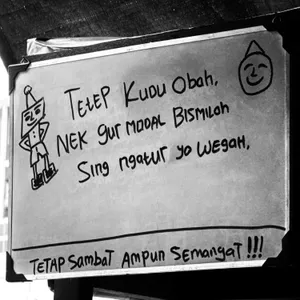 TETEP KUDU Obah,
NEK gur MODAL BISMILAH
Sing ngatur yo WEGAH,
TETAP SambaT AMPUN SEMANGAT !!!